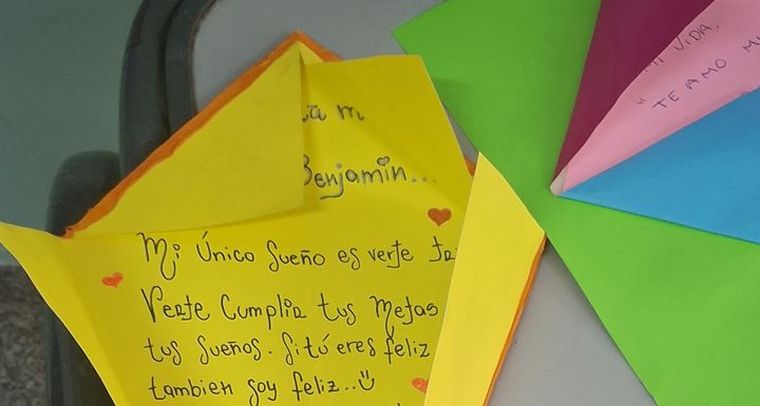 Benjamin...
Mi Único Sueño es verte
Verte Cumplir tus Metas
tus Sueños. Si tú eres feliz
tambien soy feliz..
MI VIDA.
TE AMO